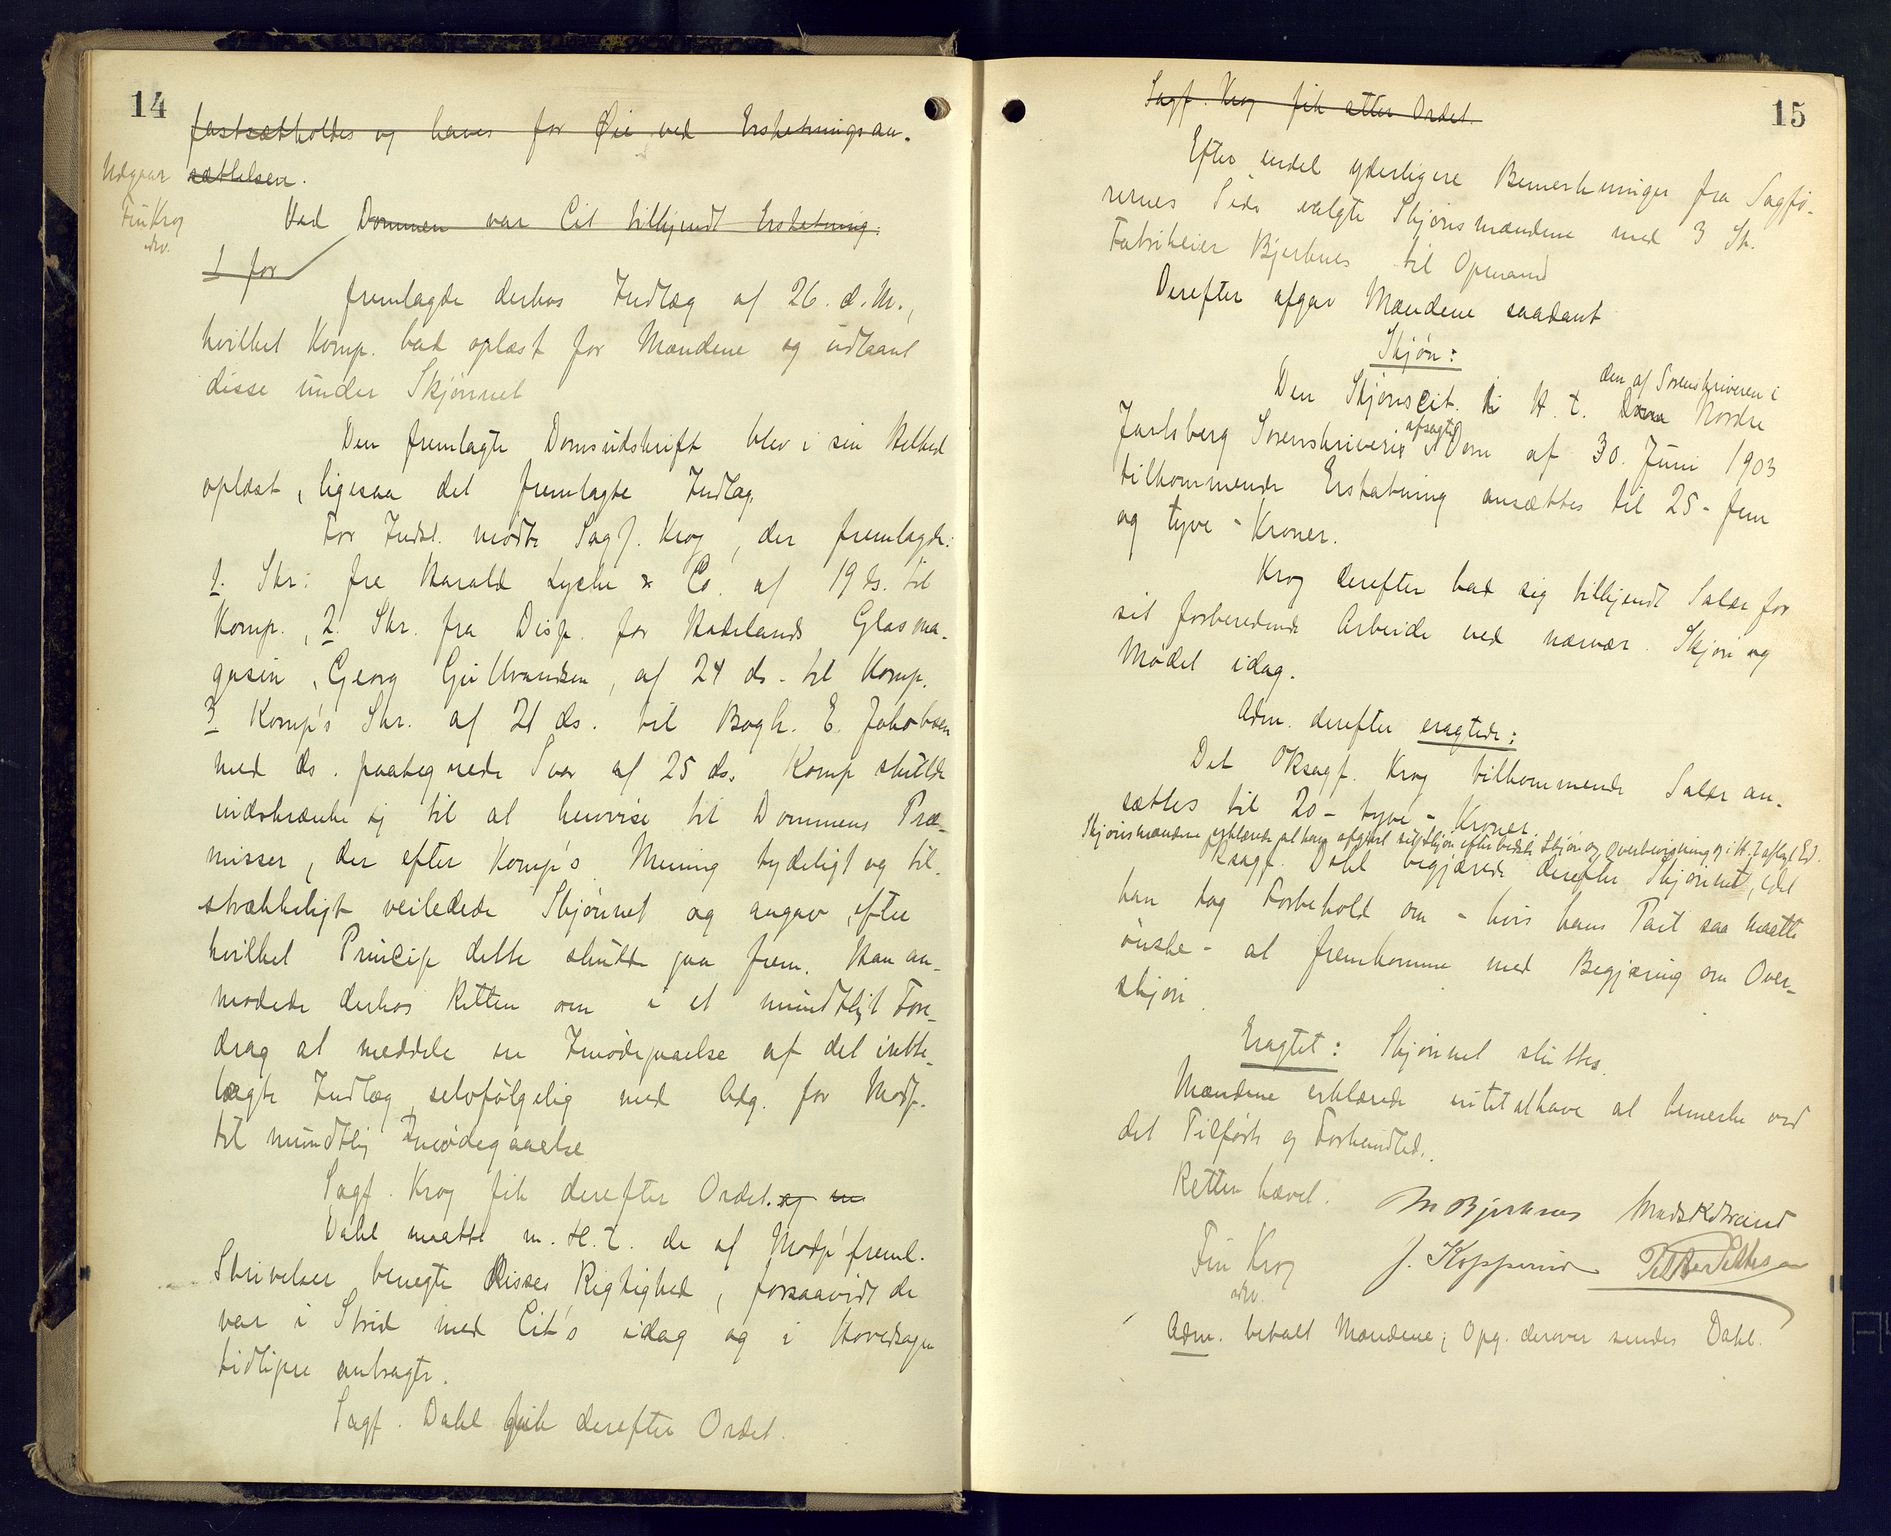 14
fastætholdes og haves for Øie ved Erstatningsan-
Udgaar sættelsen.
Fin Krog
adv.
Ved Dommen var Cit tilkjendt Erstatning.
1 for
fremlagde derhos Indlæg af 26. d. M.,
hvilket Komp. bad oplæst for Mændene og udlaant
disse under Skjønnet
Den fremlagte Domsudskrift blev i sin Helhed
oplæst, ligesaa det fremlagte Indlæg
For Indst. mødte Sagf. Krog, der fremlagde:
1. Skr: fra Harald Lyche & Co. af 19 ds. til
Komp., 2. Skr. fra Disp. for Hadelands Glasma-
gasin, Georg Gulbrandsen, af 24 ds. til Komp.
3 Komp's Skr. af 21 ds. til Bogh. E. Jakobsen
med ds. paategnede Svar af 25 ds. Komp skulde
indskrænke sig til at henvise til Dommens Præ-
misser, der efter Komp's Mening tydeligt og til-
strækkeligt veiledede Skjønnet og angav, efter
hvilket Princip dette skulde gaa frem. Han an-
modede derhos Retten om i et mundtligt Fore-
drag at meddele en Imødegaaelse af det irette-
lægte Indlæg selvfølgelig med Adg. for Modp.
til mundtlig Imødegaaelse
Sagf. Krog fik derefter Ordet. og en
Dahl maatte m. H. t. de af Modp' freml.
Skrivelser benegte disses Rigtighed, forsaavidt de
var i Strid med Cit's idag og i Hovedsagen
tidligere anbragte.
Sagf. Dahl fik derefter Ordet.
15
Sagf. Krog fik atter Ordet.
Efter endel yderligere Bemerkninger fra Sagfø-
rernes Side valgte Skjønsmændene med 3 St.
Fabrikeier Bjerknes til Opmand
Derefter afgav Mændene saadant
Skjøn:
den af Sorenskriveren i
Den Skjønscit. i H. t. Nordre
afsagte
Jarlsberg Sorenskriveri Dom af 30. Juni 1903
tilkommende Erstatning ansættes til 25 - fem
og tyve - Kroner.
Krog derefter bad sig tilkjendt Salær for
sit forberedende Arbeide ved nærvær. Skjøn og
Mødet idag.
Adm. derefter eragtede:
Det Oksagf. Krog tilkommende Salær an-
sættes til 20 - tyve - Kroner.
Skjønsmændene erklærede at have afgivet sit Skjøn efter bedste Skjøn og Overbevisning og i H. t. aflagt Ed.
Oksagf. Dahl begjærede derefter Skjønnet, idet
han tog Forbehold om - hvis hans Part saa maatte
ønske - at fremkomme med Begjæring om Over-
skjøn.
Eragtet: Skjønnet sluttes.
Mændene erklærede intet at have at bemerke ved
det Tilførte og Forhandlede.
Retten hævet.
M Bjerknes Mads K Strand
Fin Krog
adv.
J. Kopperud
Adm. betalt Mændene; Opg. derover sendes Dahl.